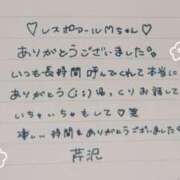 ♡レスポワールMちゃん♡
ありがとうございました。
いつも長時間呼んでくれて本当に
ありがとう(;;)ゆっくりお話して
いちゃいちゃもして♡笑
凄い時間もありがとうございました
芹沢